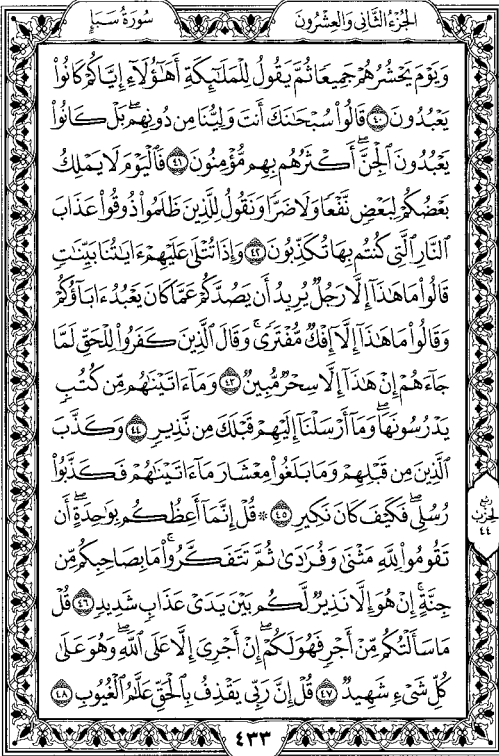 الجزء الثاني والعشرون سورة سبإ
وَيَوْمَ يَحْشُرُهُمْ جَمِيعًا ثُمَّ يَقُولُ لِلْمَلَٰٓئِكَةِ أَهَٰٓؤُلَآءِ إِيَّاكُمْ كَانُوا۟
يَعْبُدُونَ ٤٠ قَالُوا۟ سُبْحَٰنَكَ أَنتَ وَلِيُّنَا مِن دُونِهِم ۖ بَلْ كَانُوا۟
يَعْبُدُونَ ٱلْجِنَّ ۖ أَكْثَرُهُم بِهِم مُّؤْمِنُونَ ٤١ فَٱلْيَوْمَ لَا يَمْلِكُ
بَعْضُكُمْ لِبَعْضٍ نَّفْعًا وَلَا ضَرًّا وَنَقُولُ لِلَّذِينَ ظَلَمُوا۟ ذُوقُوا۟ عَذَابَ
ٱلنَّارِ ٱلَّتِى كُنتُم بِهَا تُكَذِّبُونَ ٤٢ وَإِذَا تُتْلَىٰ عَلَيْهِمْ ءَايَٰتُنَا بَيِّنَٰتٍ
قَالُوا۟ مَا هَٰذَآ إِلَّا رَجُلٌ يُرِيدُ أَن يَصُدَّكُمْ عَمَّا كَانَ يَعْبُدُ ءَابَآؤُكُمْ
وَقَالُوا۟ مَا هَٰذَآ إِلَّآ إِفْكٌ مُّفْتَرًى ۚ وَقَالَ ٱلَّذِينَ كَفَرُوا۟ لِلْحَقِّ لَمَّا
جَآءَهُمْ إِنْ هَٰذَآ إِلَّا سِحْرٌ مُّبِينٌ ٤٣ وَمَآ ءَاتَيْنَٰهُم مِّن كُتُبٍ
يَدْرُسُونَهَا ۖ وَمَآ أَرْسَلْنَآ إِلَيْهِمْ قَبْلَكَ مِن نَّذِيرٍ ٤٤ وَكَذَّبَ
ٱلَّذِينَ مِن قَبْلِهِمْ وَمَا بَلَغُوا۟ مِعْشَارَ مَآ ءَاتَيْنَٰهُمْ فَكَذَّبُوا۟
رُسُلِى ۖ فَكَيْفَ كَانَ نَكِيرِ ٤٥ ۞ قُلْ إِنَّمَآ أَعِظُكُم بِوَٰحِدَةٍ ۖ أَن
ربع
الحزب
٤٤
تَقُومُوا۟ لِلَّهِ مَثْنَىٰ وَفُرَٰدَىٰ ثُمَّ تَتَفَكَّرُوا۟ ۚ مَا بِصَاحِبِكُم مِّن
جِنَّةٍ ۚ إِنْ هُوَ إِلَّا نَذِيرٌ لَّكُم بَيْنَ يَدَىْ عَذَابٍ شَدِيدٍ ٤٦ قُلْ
مَا سَأَلْتُكُم مِّنْ أَجْرٍ فَهُوَ لَكُمْ ۖ إِنْ أَجْرِىَ إِلَّا عَلَى ٱللَّهِ ۖ وَهُوَ عَلَىٰ
كُلِّ شَىْءٍ شَهِيدٌ ٤٧ قُلْ إِنَّ رَبِّى يَقْذِفُ بِٱلْحَقِّ عَلَّٰمُ ٱلْغُيُوبِ ٤٨
٤٣٣